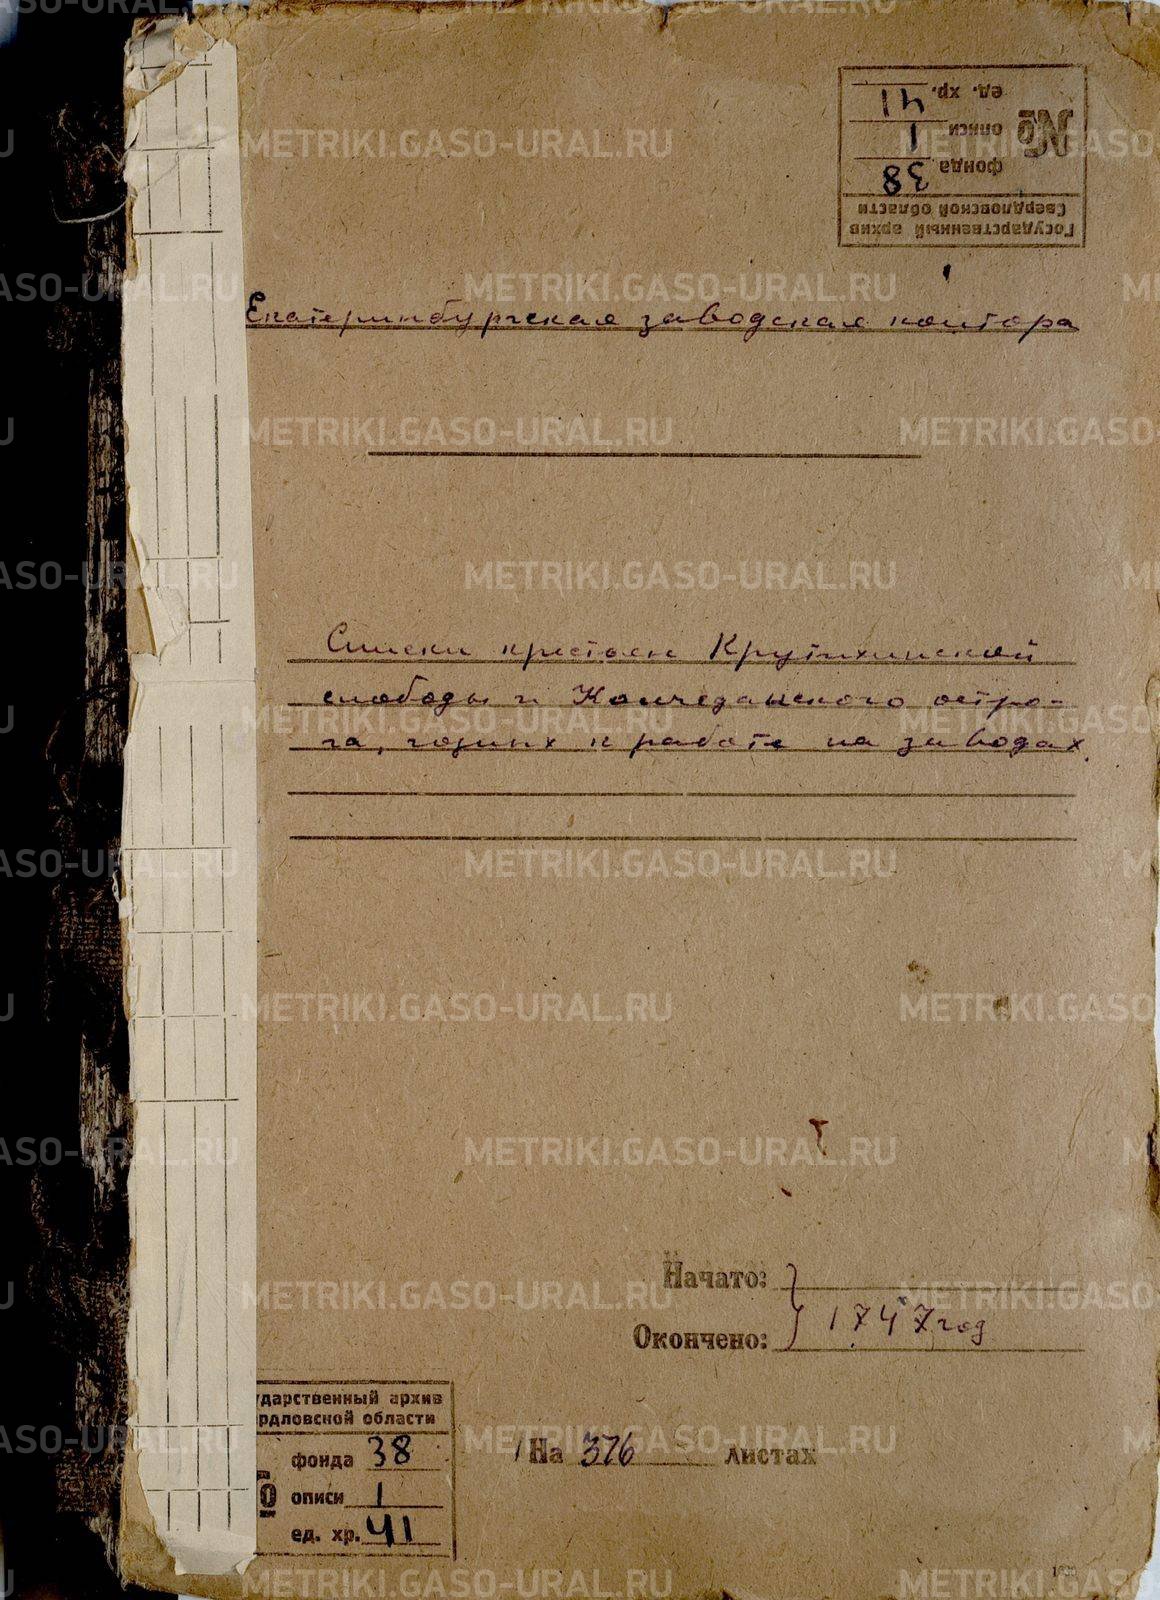 Государственный архив
Свердловской области
№
фонда 38
описи 1
ед. хр. 41
Екатеринбургская заводская контора
Списки крестьян Крутихинской
слободы и Колчеданского остро-
га, годных к работе на заводах.
Начато:
Окончено:
1747 год
На 376 листах
ударственный архив
рдловской области
фонда 38
описи 1
ед. хр. 41
METRIKI.GASO-URAL.RU